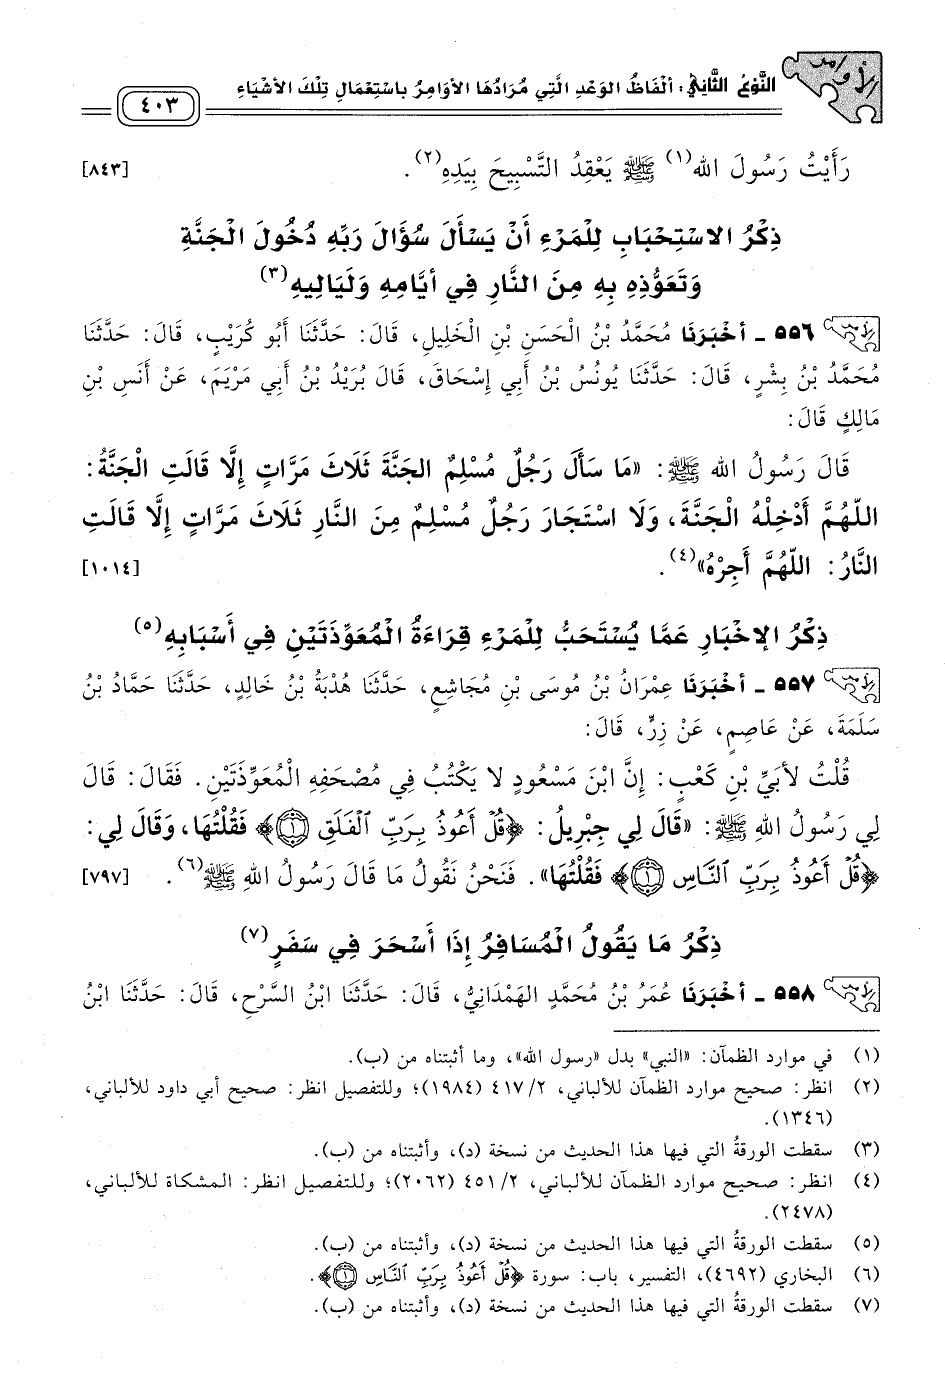 الأوامر
النَّوْعُ الثَّانِي: أَلْفَاظُ الوَعْدِ الَّتِي مُرَادُهَا الأَوَامِرُ بِاسْتِعْمَالِ تِلْكَ الأَشْيَاءِ
٤٠٣
رَأَيْتُ رَسُولَ اللهِ(١) ﷺ يَعْقِدُ التَّسْبِيحَ بِيَدِهِ(٢). [٨٤٣]
ذِكْرُ الاسْتِحْبَابِ لِلْمَرْءِ أَنْ يَسْأَلَ سُؤَالَ رَبِّهِ دُخُولَ الْجَنَّةِ
وَتَعَوُّذِهِ بِهِ مِنَ النَّارِ فِي أَيَّامِهِ وَلَيَالِيهِ(٣)
٥٥٦ - أَخْبَرَنَا مُحَمَّدُ بْنُ الْحَسَنِ بْنِ الْخَلِيلِ، قَالَ: حَدَّثَنَا أَبُو كُرَيْبٍ، قَالَ: حَدَّثَنَا
مُحَمَّدُ بْنُ بِشْرٍ، قَالَ: حَدَّثَنَا يُونُسُ بْنُ أَبِي إِسْحَاقَ، قَالَ بُرَيْدُ بْنُ أَبِي مَرْيَمَ، عَنْ أَنَسِ بْنِ
مَالِكٍ قَالَ:
قَالَ رَسُولُ اللهِ ﷺ: «مَا سَأَلَ رَجُلٌ مُسْلِمٌ الجَنَّةَ ثَلَاثَ مَرَّاتٍ إِلَّا قَالَتِ الْجَنَّةُ:
اللّهُمَّ أَدْخِلْهُ الْجَنَّةَ، وَلَا اسْتَجَارَ رَجُلٌ مُسْلِمٌ مِنَ النَّارِ ثَلَاثَ مَرَّاتٍ إِلَّا قَالَتِ
النَّارُ: اللّهُمَّ أَجِرْهُ»(٤). [١٠١٤]
ذِكْرُ الإِخْبَارِ عَمَّا يُسْتَحَبُّ لِلْمَرْءِ قِرَاءَةُ الْمُعَوِّذَتَيْنِ فِي أَسْبَابِهِ(٥)
٥٥٧ - أَخْبَرَنَا عِمْرَانُ بْنُ مُوسَى بْنِ مُجَاشِعٍ، حَدَّثَنَا هُدْبَةُ بْنُ خَالِدٍ، حَدَّثَنَا حَمَّادُ بْنُ
سَلَمَةَ، عَنْ عَاصِمٍ، عَنْ زِرٍّ، قَالَ:
قُلْتُ لأُبَيِّ بْنِ كَعْبٍ: إِنَّ ابْنَ مَسْعُودٍ لا يَكْتُبُ فِي مُصْحَفِهِ الْمُعَوِّذَتَيْنِ. فَقَالَ: قَالَ
لِي رَسُولُ اللهِ ﷺ: «قَالَ لِي جِبْرِيلُ: ﴿قُلْ أَعُوذُ بِرَبِّ ٱلْفَلَقِ ۝١﴾ فَقُلْتُهَا، وَقَالَ لِي:
﴿قُلْ أَعُوذُ بِرَبِّ ٱلنَّاسِ ۝١﴾ فَقُلْتُهَا». فَنَحْنُ نَقُولُ مَا قَالَ رَسُولُ اللهِ ﷺ(٦). [٧٩٧]
ذِكْرُ مَا يَقُولُ الْمُسَافِرُ إِذَا أَسْحَرَ فِي سَفَرٍ(٧)
٥٥٨ - أَخْبَرَنَا عُمَرُ بْنُ مُحَمَّدٍ الهَمْدَانِيُّ، قَالَ: حَدَّثَنَا ابْنُ السَّرْحِ، قَالَ: حَدَّثَنَا ابْنُ
(١) في موارد الظمآن: «النبي» بدل «رسول الله»، وما أثبتناه من (ب).
(٢) انظر: صحيح موارد الظمآن للألباني، ٤١٧/٢ (١٩٨٤)؛ وللتفصيل انظر: صحيح أبي داود للألباني،
(١٣٤٦).
(٣) سقطت الورقةُ التي فيها هذا الحديث من نسخة (د)، وأثبتناه من (ب).
(٤) انظر: صحيح موارد الظمآن للألباني، ٤٥١/٢ (٢٠٦٢)؛ وللتفصيل انظر: المشكاة للألباني،
(٢٤٧٨).
(٥) سقطت الورقةُ التي فيها هذا الحديث من نسخة (د)، وأثبتناه من (ب).
(٦) البخاري (٤٦٩٢)، التفسير، باب: سورة ﴿قُلْ أَعُوذُ بِرَبِّ ٱلنَّاسِ ۝١﴾.
(٧) سقطت الورقةُ التي فيها هذا الحديث من نسخة (د)، وأثبتناه من (ب).